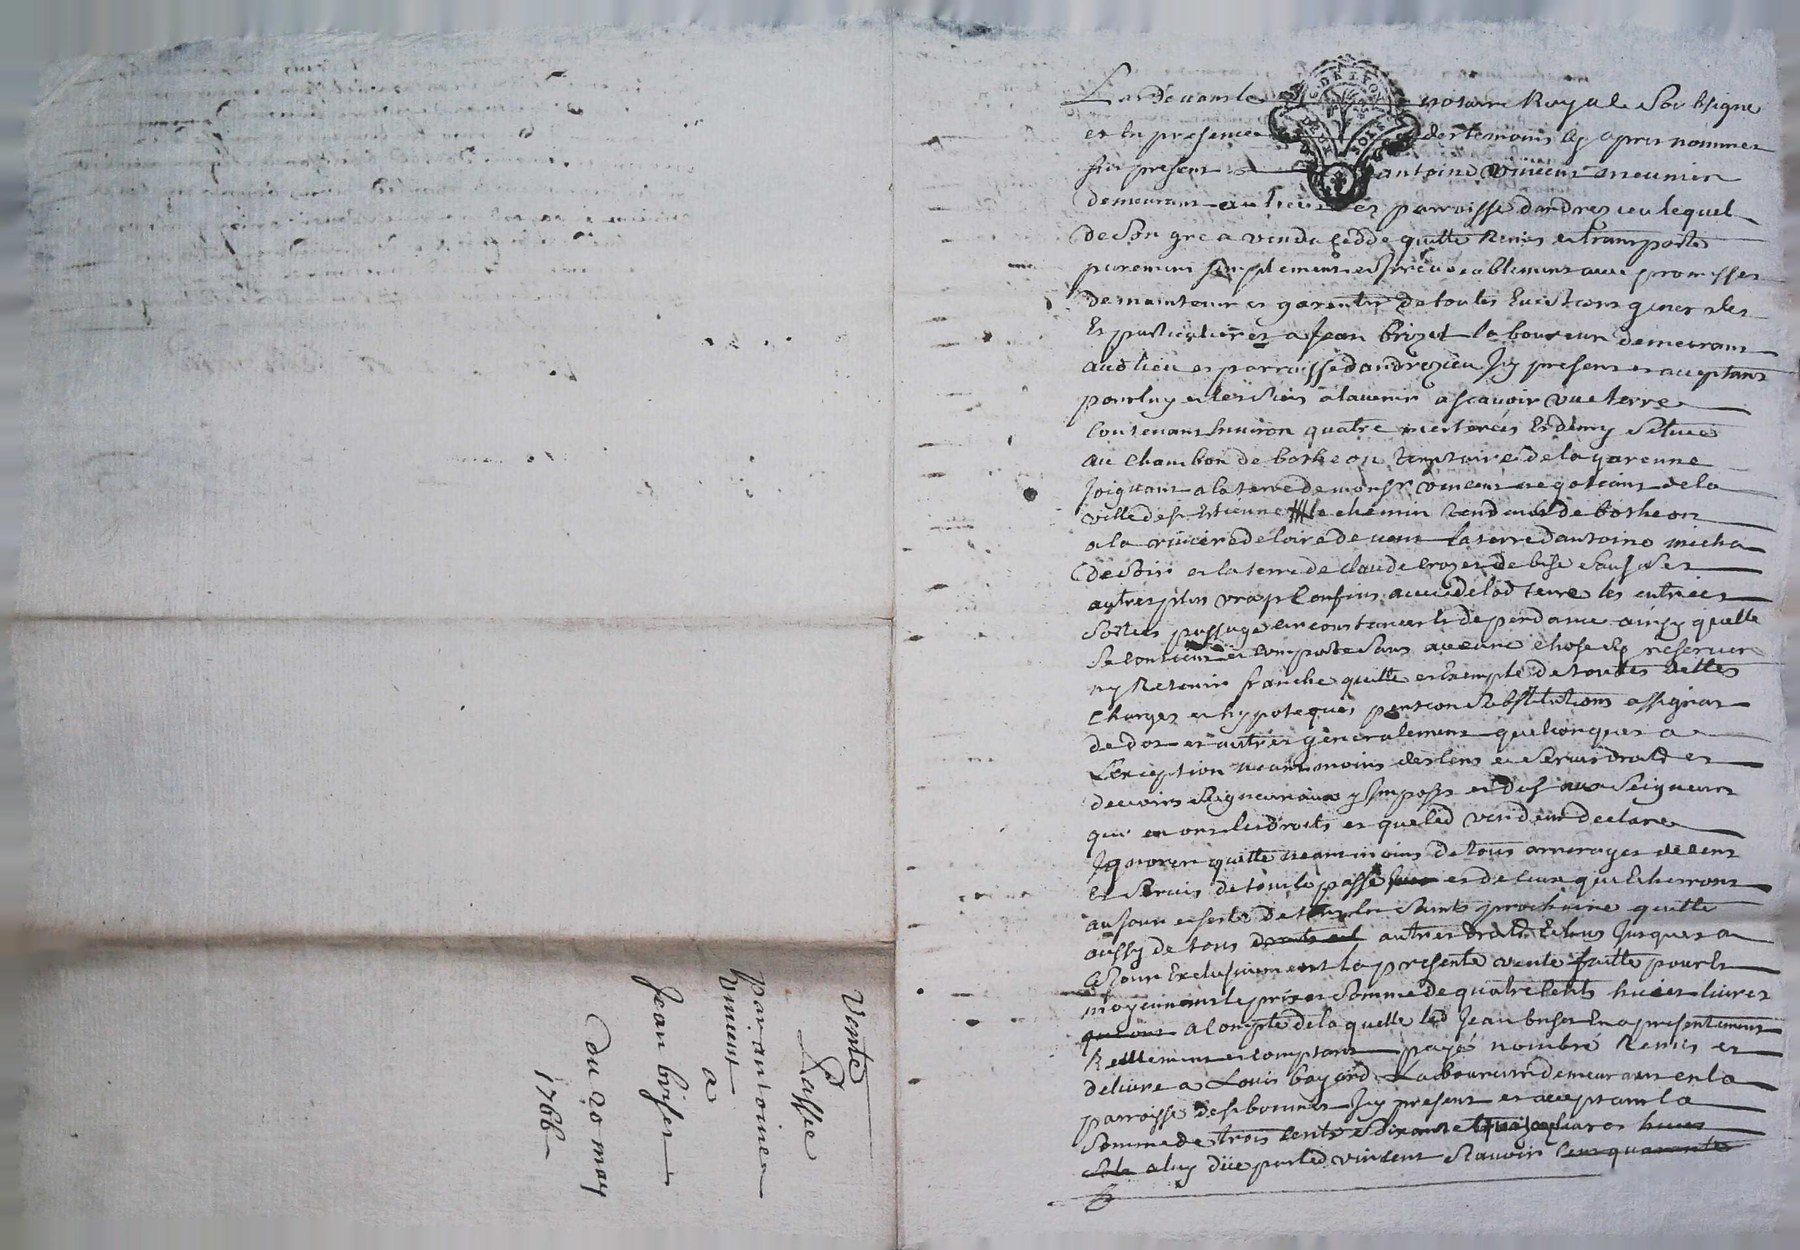 Vente
Passée
par antoine
vincent
a
Jean briset
du 20 may
1766
G. DE LYON
Pardevant le notaire Royal Soubsigné
et En presence des temoins cy apres nommes
fut present antoine vincent meunier
demeurant au lieu et parroisse dandrezieu lequel
de Son gré a vendu cedde quitte Remis et transporté
purement simplement et Irrevocablement avec promesses
de maintenir et garentir de toutes Evictions generales
Et particulieres a Jean brizet laboureur demeurant
aud lieu et parroisse dandrezieu Icy present et acceptant
pour luy et les Siens a lavenir a scavoir une terre
Contenant Environ quatre mesterées Et demy Scituée
au Chambon de botheon territoire de la garenne
Joignant a la terre de monsr vincent negotiant de la
ville de st Estienne le chemin tendant de botheon
a la riviere de loire de vent la terre dantoine micha
de Soir et la terre de claude crozet de bise Sauf Ses
autres plus vrays Confins avec de lad terre les entrées
Sorties passage circonstances et dependance ainsy quelle
Se contient et comporte Sans aucune chose Sy reserver
ny Retenir franche quitte et Exempte de toutes dettes
Charges et hypoteques pension Substitutions assignat
de dot et autres generalement quelconques a
L'exception neanmoins des Cens et Servis droits et
devoirs Seigneuriaux y Imposés et dus aux Seigneurs
qui en ont les droits et que led vendeur declare
Ignorer quitte neanmoins de tous arrerages de cens
Et Servis de tout le passé et de ceux qui Echerront
au jour et feste de tous les Saints prochaine quitte
aussy de tous droits et autres droits Echus Jusques a
ce Jour Exclusivement la presente vente faitte pour et
moyennant le prix et Somme de quatre Cents huict livres
a Compte de la quelle led Jean briset En a presentement
Reellement et comptant payé nombré Remis et
delivré a Louis bayard Laboureur demeurant en la
parroisse de st bonnet Icy present et acceptant la
Somme de trois Cents Soixante livres
a luy düe par led vincent Scavoir Cent quarante